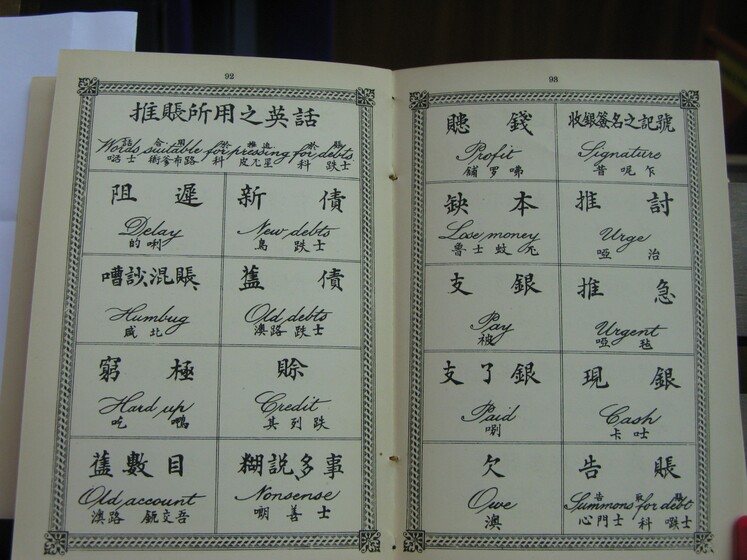 92
推賬所用之英話
Words suitable for pressing for debts
科 科 跌士
阻遲 新債
Delay New debts
的唎 鳥跌士
嘈混賬 舊債
Humbug Old debts
咸北 澳路跌士
窮極 賒
Hard up Credit
吃 鴨 其列跌
舊數目 糊說多事
Old account Nonsense
澳路 交吾 嘲善士
93
賺錢 收銀簽名之記號
Profit Signature
罗弗 昔呢乍
缺本 推討
Lose money Urge
魯士蚊 啞治
支銀 推急
Pay Urgent
被 啞毡
支了銀 現銀
Paid Cash
唎 卡吐
欠 告賬
Owe Summons for debt
澳 心門士科